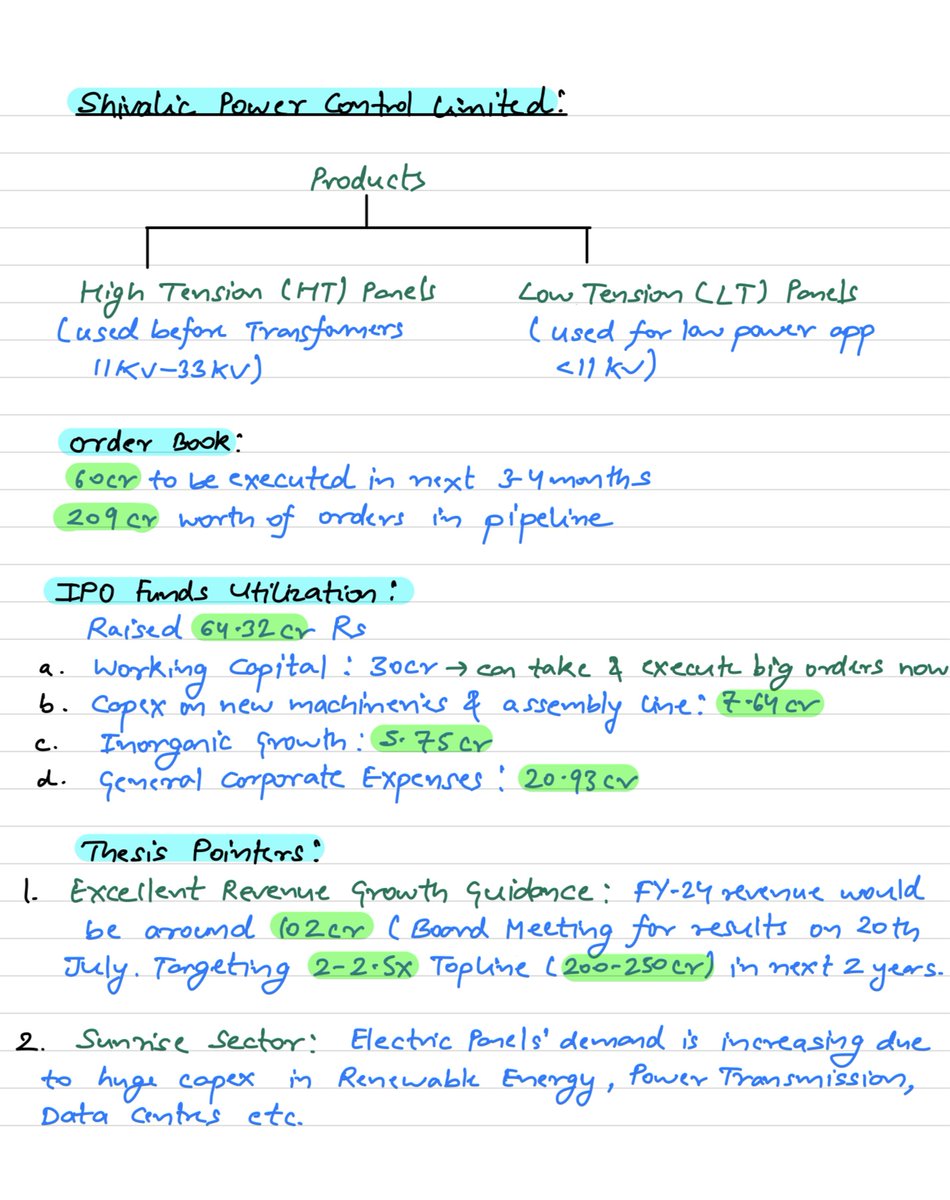 Shivalic Power Control Limited:
Products
High Tension (HT) Panels
(used before Transformers
11KV-33KV)
Low Tension (LT) Panels
(used for low power app
<11 KV)
order Book:
60cr to be executed in next 3-4 months
209 cr worth of orders in pipeline
IPO Funds Utilization:
Raised 64.32 cr Rs
a. Working Capital: 30cr → can take & execute big orders now
b. Capex on new machineries & assembly line: 7.64 cr
c. Inorganic Growth: 5.75 cr
d. General Corporate Expenses: 20.93 cr
Thesis Pointers:
1. Excellent Revenue Growth Guidance: FY-24 revenue would
be around 102 cr (Board Meeting for results on 20th
July. Targeting 2-2.5x Topline (200-250 cr) in next 2 years.
2. Sunrise Sector: Electric Panels' demand is increasing due
to huge capex in Renewable Energy, Power Transmission,
Data Centres etc.